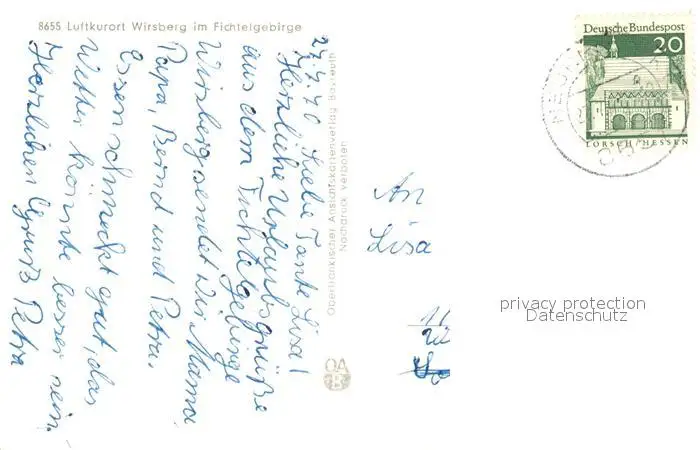 8655 Luftkurort Wirsberg im Fichtelgebirge
27.7.70 Liebe Tante Lisa!
Herzliche Urlaubsgrüße
aus dem Fichtelgebirge
Wirsberg sendet Dir Mama
Papa, Bernd und Petra.
Essen schmeckt gut, das
Wetter könnte besser sein.
Herzlichen Gruß Petra
Oberfränkischer Ansichtskartenverlag Bayreuth
Nachdruck verboten
OAB
Deutsche Bundespost
20
LORSCH/HESSEN
An
Lisa
privacy protection
Datenschutz